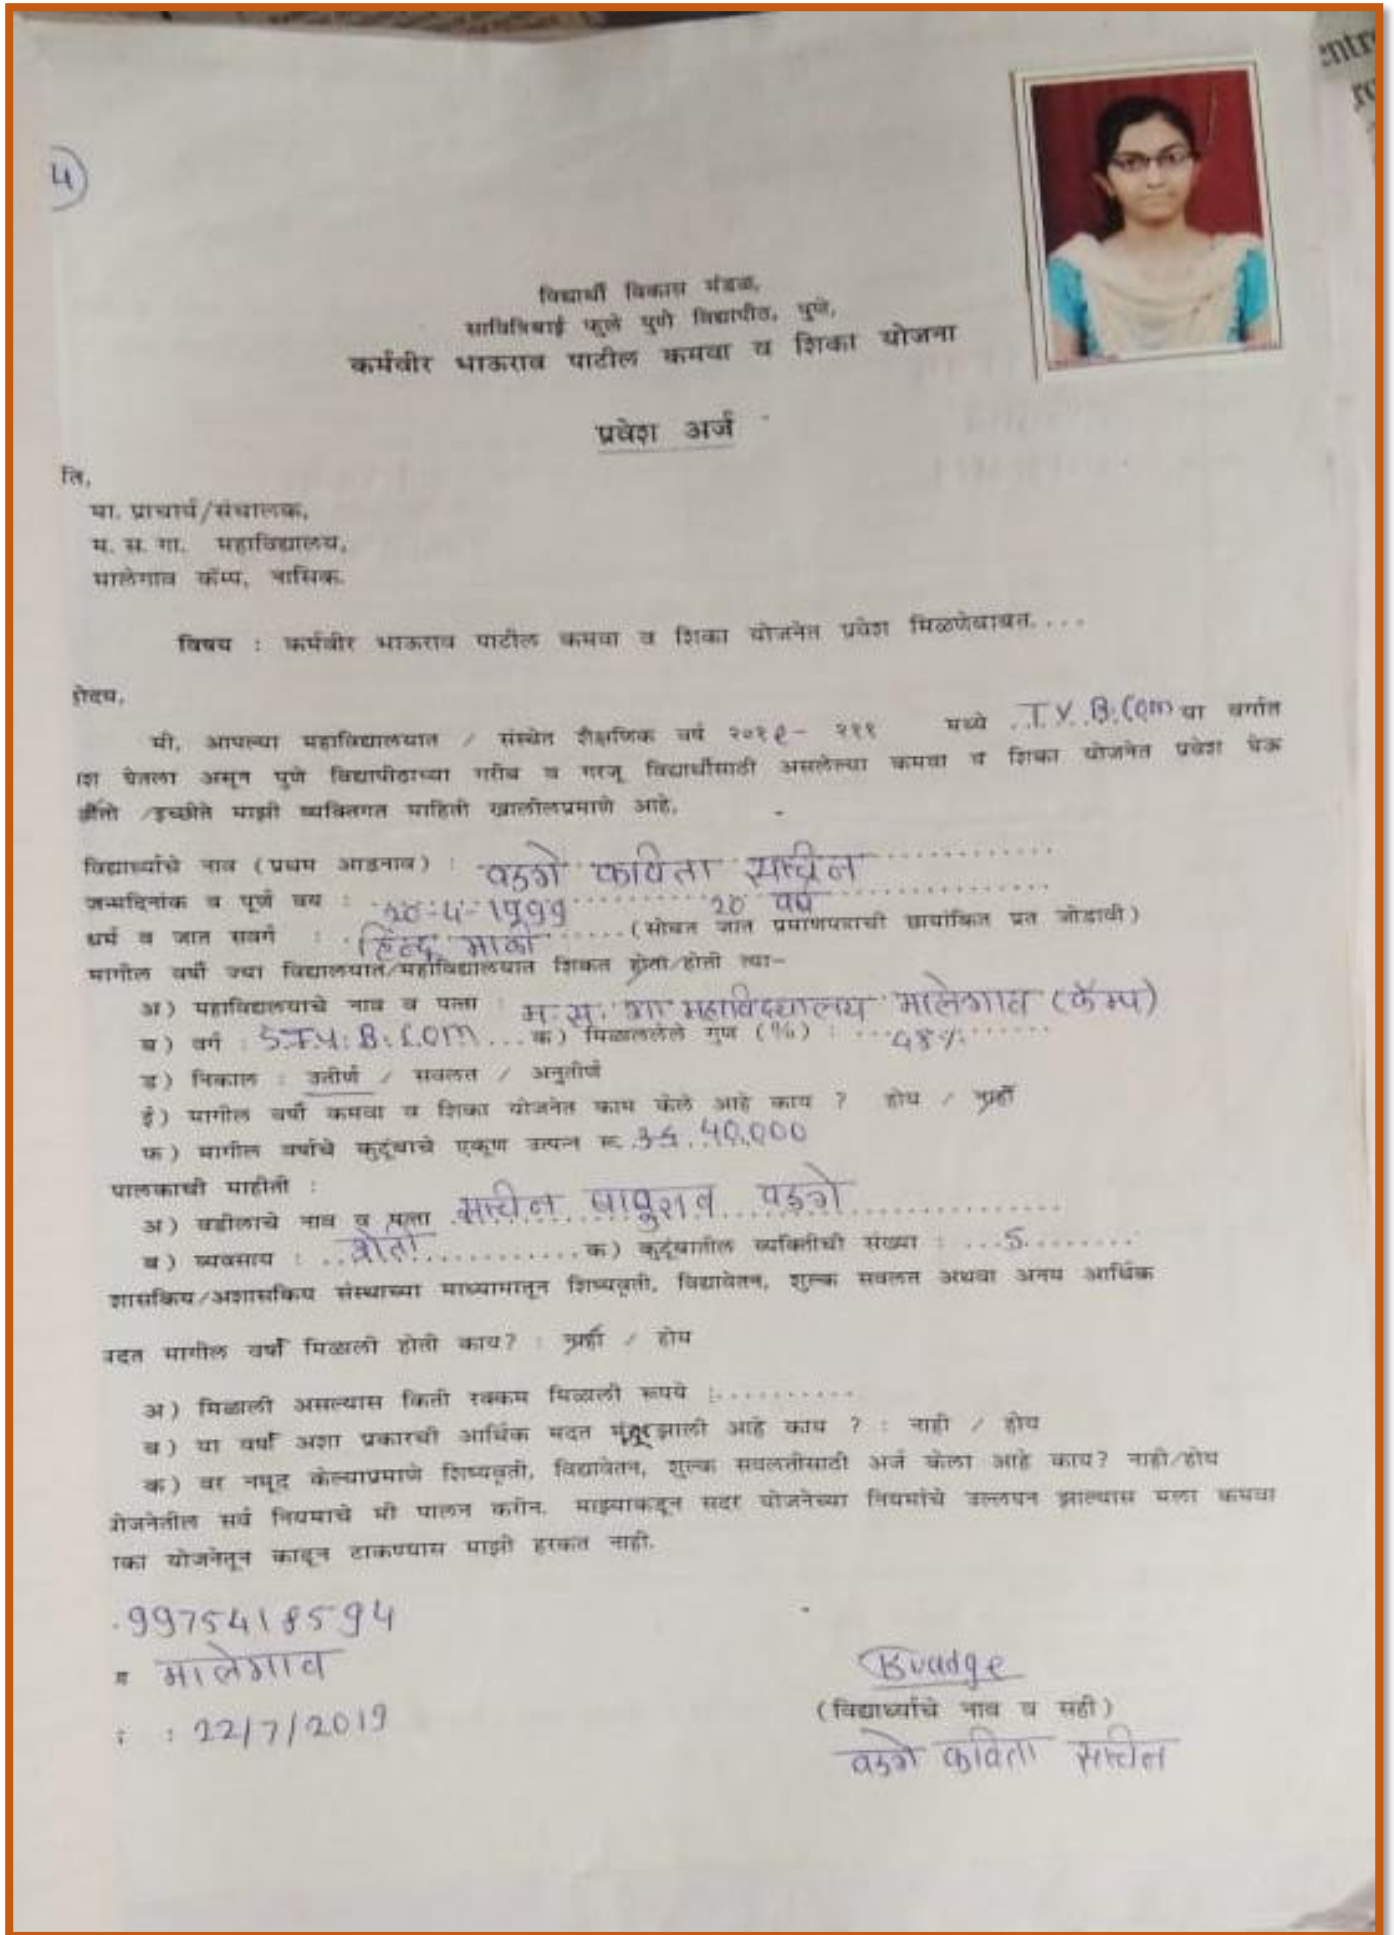 4
entr
विद्यार्थी विकास मंडळ,
सावित्रिबाई फुले पुणे विद्यापीठ, पुणे,
कर्मवीर भाऊराव पाटील कमवा व शिका योजना
प्रवेश अर्ज
ति,
मा. प्राचार्य/संचालक,
म. स. गा. महाविद्यालय,
मालेगाव कॅम्प, नासिक.
विषय : कर्मवीर भाऊराव पाटील कमवा व शिका योजनेत प्रवेश मिळणेबाबत....
होदय,
मी, आपल्या महाविद्यालयात / संस्थेत शैक्षणिक वर्ष मध्ये .T.Y.B.Com या वर्गात
श घेतला असून पुणे विद्यापीठाच्या गरीब व गरजू विद्यार्थीसाठी असलेल्या कमवा व शिका योजनेत प्रवेश घेऊ
/इच्छीते माझी व्यक्तिगत माहिती खालीलप्रमाणे आहे.
विद्यार्थ्याचे नाव (प्रथम आडनाव) : वडगे कविता सचिन
जन्मदिनांक व पूर्ण वय : 20-4-1999 20 वर्ष
धर्म व जात सवर्ग : हिन्दू माळी (सोबत जात प्रमाणपत्राची छायांकित प्रत जोडावी)
मागील वर्षी ज्या विद्यालयात/महाविद्यालयात शिकत होतो/होती त्या-
अ) महाविद्यालयाचे नाव व पत्ता : म.स. गा महाविद्यालय मालेगाव (कॅम्प)
ब) वर्ग : S.Y.B.Com...क) मिळालेले गुण (%) : 48%
ड) निकाल : उतीर्ण / सवलत / अनुतीर्ण
ई) मागील वर्षी कमवा व शिका योजनेत काम केले आहे काय ? होय / नाही
फ) मागील वर्षाचे कुटूंबाचे एकूण उत्पन्न रू. 40,000
पालकाची माहीती :
अ) वडीलाचे नाव व पत्ता सचिन बापुराव वडगे
ब) व्यवसाय : शेती............क) कुटूंबातील व्यक्तिची संख्या : ...5........
शासकिय/अशासकिय संस्थाच्या माध्यामातून शिष्यवृती, विद्यावेतन, शुल्क सवलत अथवा अनय आर्थिक
मदत मागील वर्षी मिळाली होती काय? : नाही / होय
अ) मिळाली असल्यास किती रक्कम मिळाली रूपये :..........
ब) या वर्षी अशा प्रकारची आर्थिक मदत मंजूर झाली आहे काय ? : नाही / होय
क) वर नमूद केल्याप्रमाणे शिष्यवृती, विद्यावेतन, शुल्क सवलतीसाठी अर्ज केला आहे काय? नाही/होय
योजनेतील सर्व नियमाचे मी पालन करीन. माझ्याकडून सदर योजनेच्या नियमांचे उल्लघन झाल्यास मला कमवा
का योजनेतून काढून टाकण्यास माझी हरकत नाही.
9975418594
मालेगाव
: 22/7/2019
Kvadge
(विद्यार्थ्याचे नाव व सही)
वडगे कविता सचिन